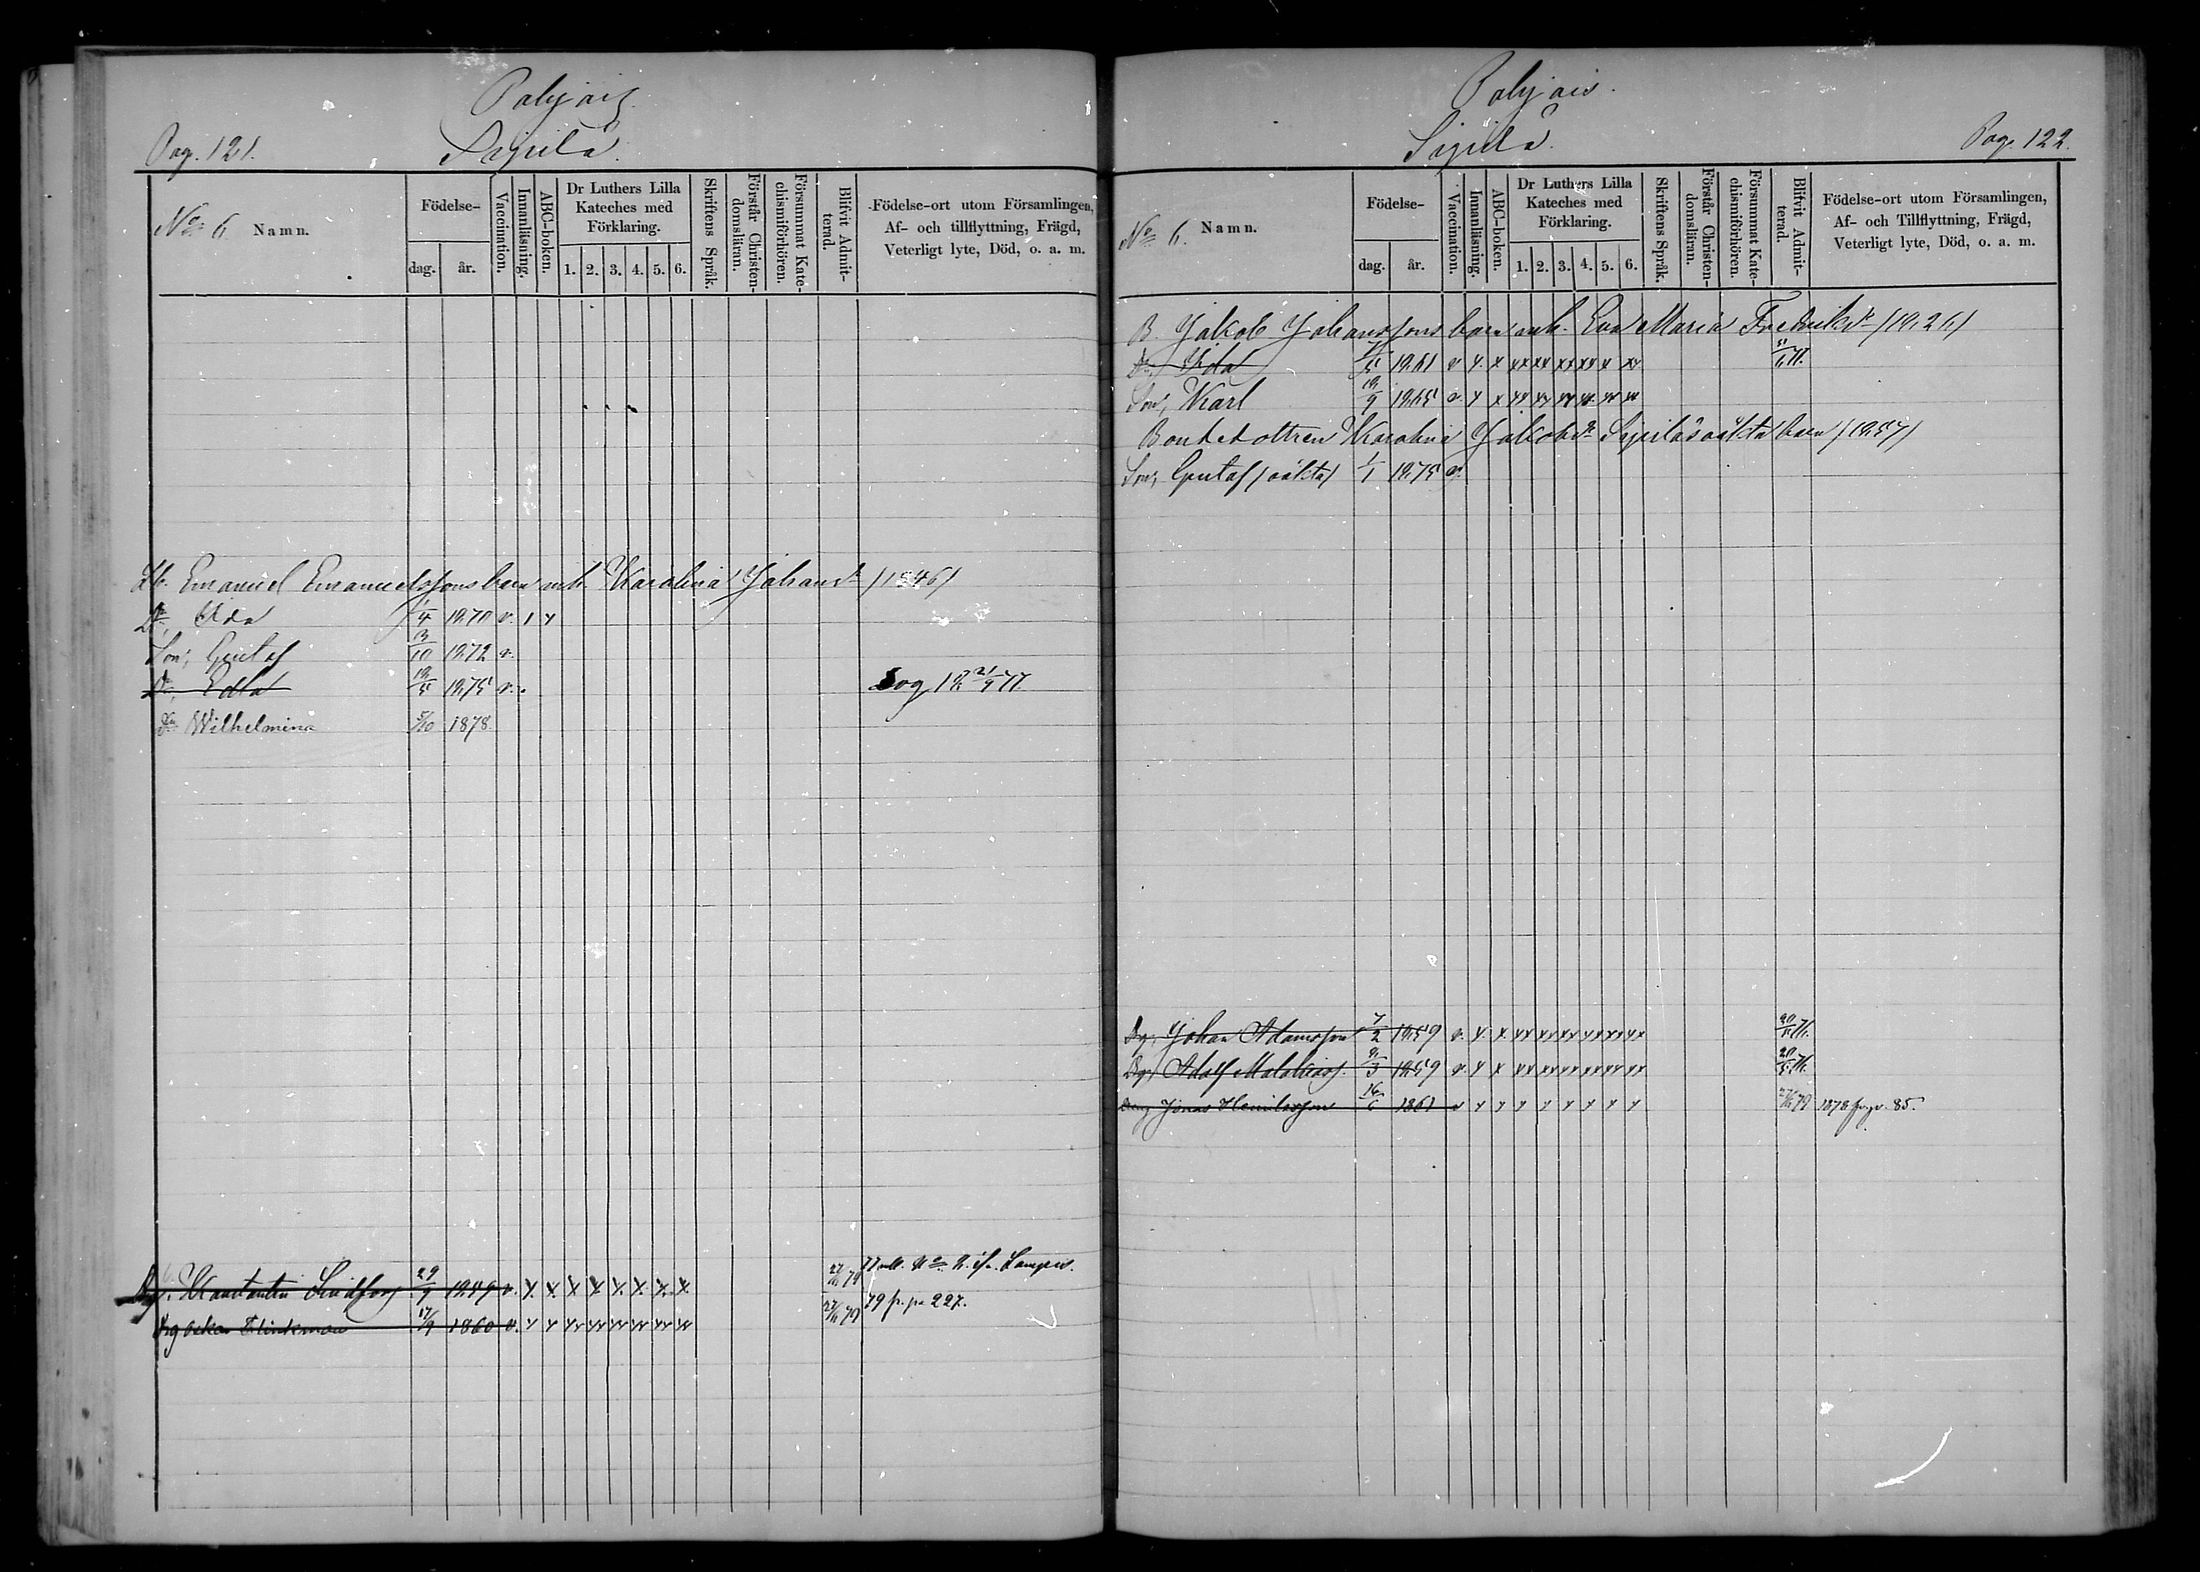 Pag. 121.
Pohjois.
Sipilä.
No 6. Namn.
Födelse-
dag. år.
Vaccination.
Innanläsning.
ABC-boken.
Dr Luthers Lilla Kateches med Förklaring.
1. 2. 3. 4. 5. 6.
Skriftens Språk.
Förstår Christendomsläran.
Försummat Katechismiförhören.
Blifvit Admitterad.
Födelse-ort utom Församlingen, Af- och tillflyttning, Frägd, Veterligt lyte, Död, o. a. m.
Emanuel Emanuelssons barn m. h. Karolina Johansdr /1846/
Dr, Ida 1/4 1870 v. 1 x
Son, Gustaf 13/10 1872 v.
Dr, Edla 18/5 1875 v. Dog 18 21/9 77.
Dr Wilhelmina 5/10 1878.
Konstantin Lindfors 29/9 1859 v. x x x x x x x x 79
Drg Oskar Flinkman 17/9 1860 v. x x xx xx xx xx xx xx 79 79 fr. p. 227.
Pohjois.
Sipilä.
Pag. 122.
No 6. Namn.
Födelse-
dag. år.
Vaccination.
Innanläsning.
ABC-boken.
Dr Luthers Lilla Kateches med Förklaring.
1. 2. 3. 4. 5. 6.
Skriftens Språk.
Förstår Christendomsläran.
Försummat Katechismiförhören.
Blifvit Admitterad.
Födelse-ort utom Församlingen, Af- och Tillflyttning, Frägd, Veterligt lyte, Död, o. a. m.
B. Jakob Johanssons barn m. h. Eva Maria Fredriksdr /1826/
Dr, Ida 1861 v x x xx xx xx xx x xx
Son, Karl 18/9 1865 v. x x xx xx xx xx xx xx
Bondedottren Karolina Jakobsdr Sipiläs oäkta barn /1857/
Son, Gustaf /oäkta/ 1/1 1875 v.
Dg, Johan Adamsson 7/2 1859 v. x x xx xx xx xx xx xx
Dg, Adolf Malakiass. 9/3 1859 v. x x xx xx xx xx xx xx
Dreng Jonas Henriksson 16/6 1861 v x x x x x x x x 79 1878 fr. p. 85.